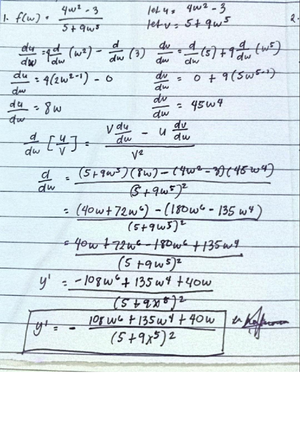 1. f(w) = (4w² - 3)/(5 + 9w⁵) let u = 4w² - 3
let v = 5 + 9w⁵
du/dw = 4 d/dw (w²) - d/dw (3) dv/dw = d/dw (5) + 9 d/dw (w⁵)
du/dw = 4(2w²⁻¹) - 0 dv/dw = 0 + 9(5w⁵⁻¹)
du/dw = 8w dv/dw = 45w⁴
d/dw [u/v] = (V du/dw - u dv/dw)/V²
d/dw = ((5+9w⁵)(8w) - (4w²-3)(45w⁴))/(5+9w⁵)²
= ((40w+72w⁶) - (180w⁶ - 135w⁴))/(5+9w⁵)²
= (40w + 72w⁶ - 180w⁶ + 135w⁴)/(5+9w⁵)²
y' = (-108w⁶ + 135w⁴ + 40w)/(5+9x⁵)²
y' = - (108w⁶ + 135w⁴ + 40w)/(5+9x⁵)²
2.